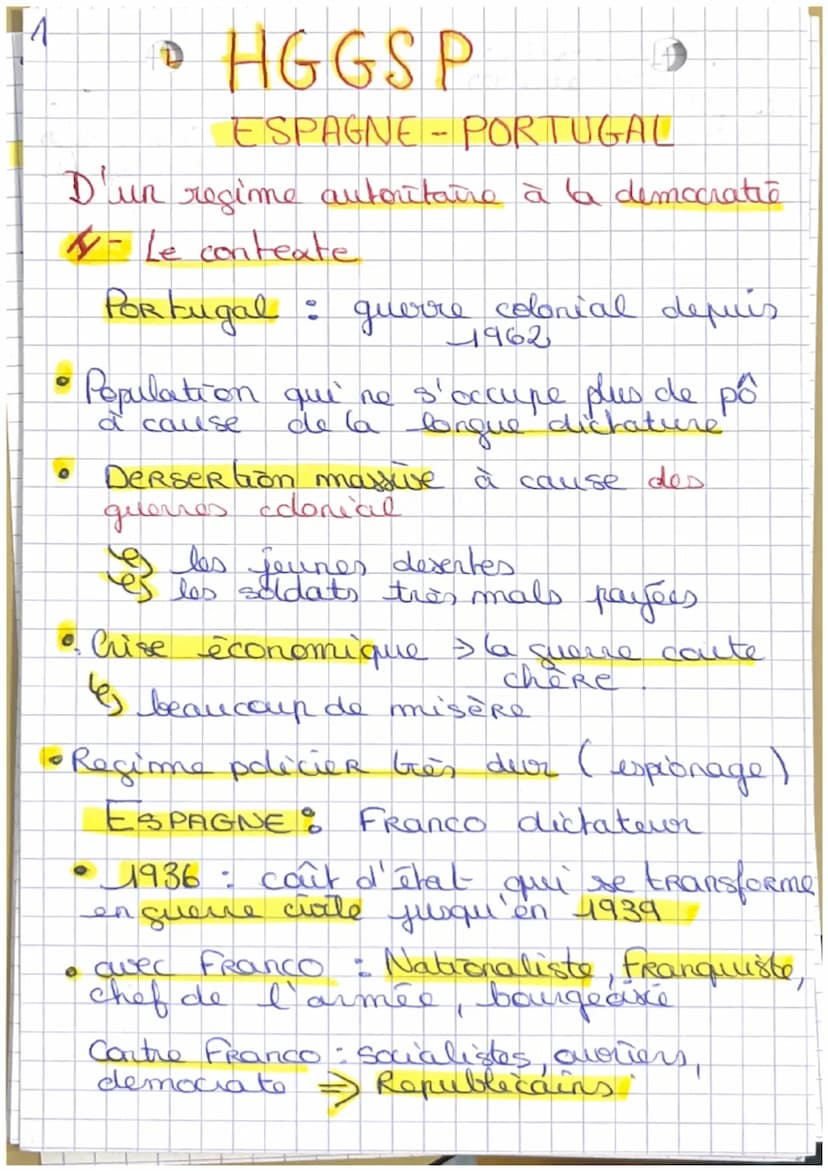 1
HGGSP
ESPAGNE - PORTUGAL
D'un regime autoritaire à la democratie
I - Le contexte
PORtugal : guerre colonial depuis
1962
• Population qui ne s'occupe plus de pô
à cause de la longue dictature
• DERSERtion massive à cause des
guerres colonial
↳ les jeunes desertes
↳ les soldats très mals payées
• Crise économique → la guerre coute
chère.
↳ beaucoup de misère
• Regime policier très dur (espionage)
ESPAGNE : FRANCO dictateur
• 1936 : coût d'état qui se transforme
en guerre civile jusqu'en 1939
• avec FRANCO : Nationaliste, franquiste,
chef de l'armée, bourgeoisie
Contre Franco : socialistes, ouvriers,
democrate ⇒ Republicains